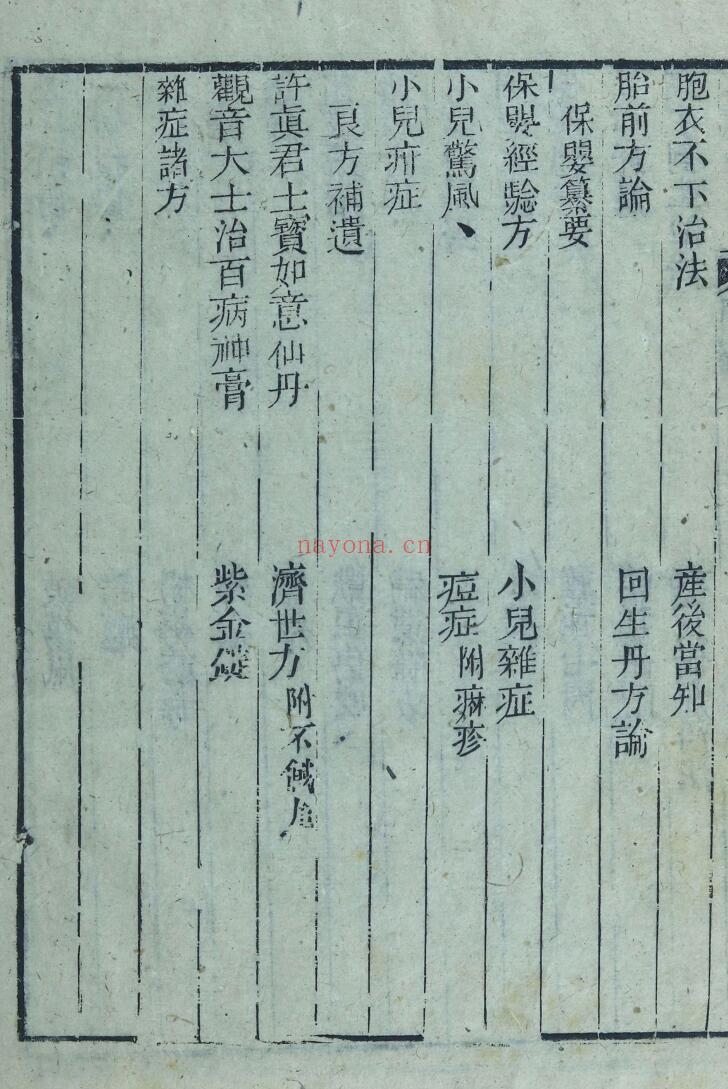 胞衣不下治法　產後當知
胎前方論　回生丹方論
保嬰纂要
保嬰經驗方　小兒雜症
小兒驚風　痘症附痳疹
小兒疳症
良方補遺
許眞君土寶如意仙丹　濟世方附不
觀音大士治百病神膏　紫金
雜症諸方
nayona.cn